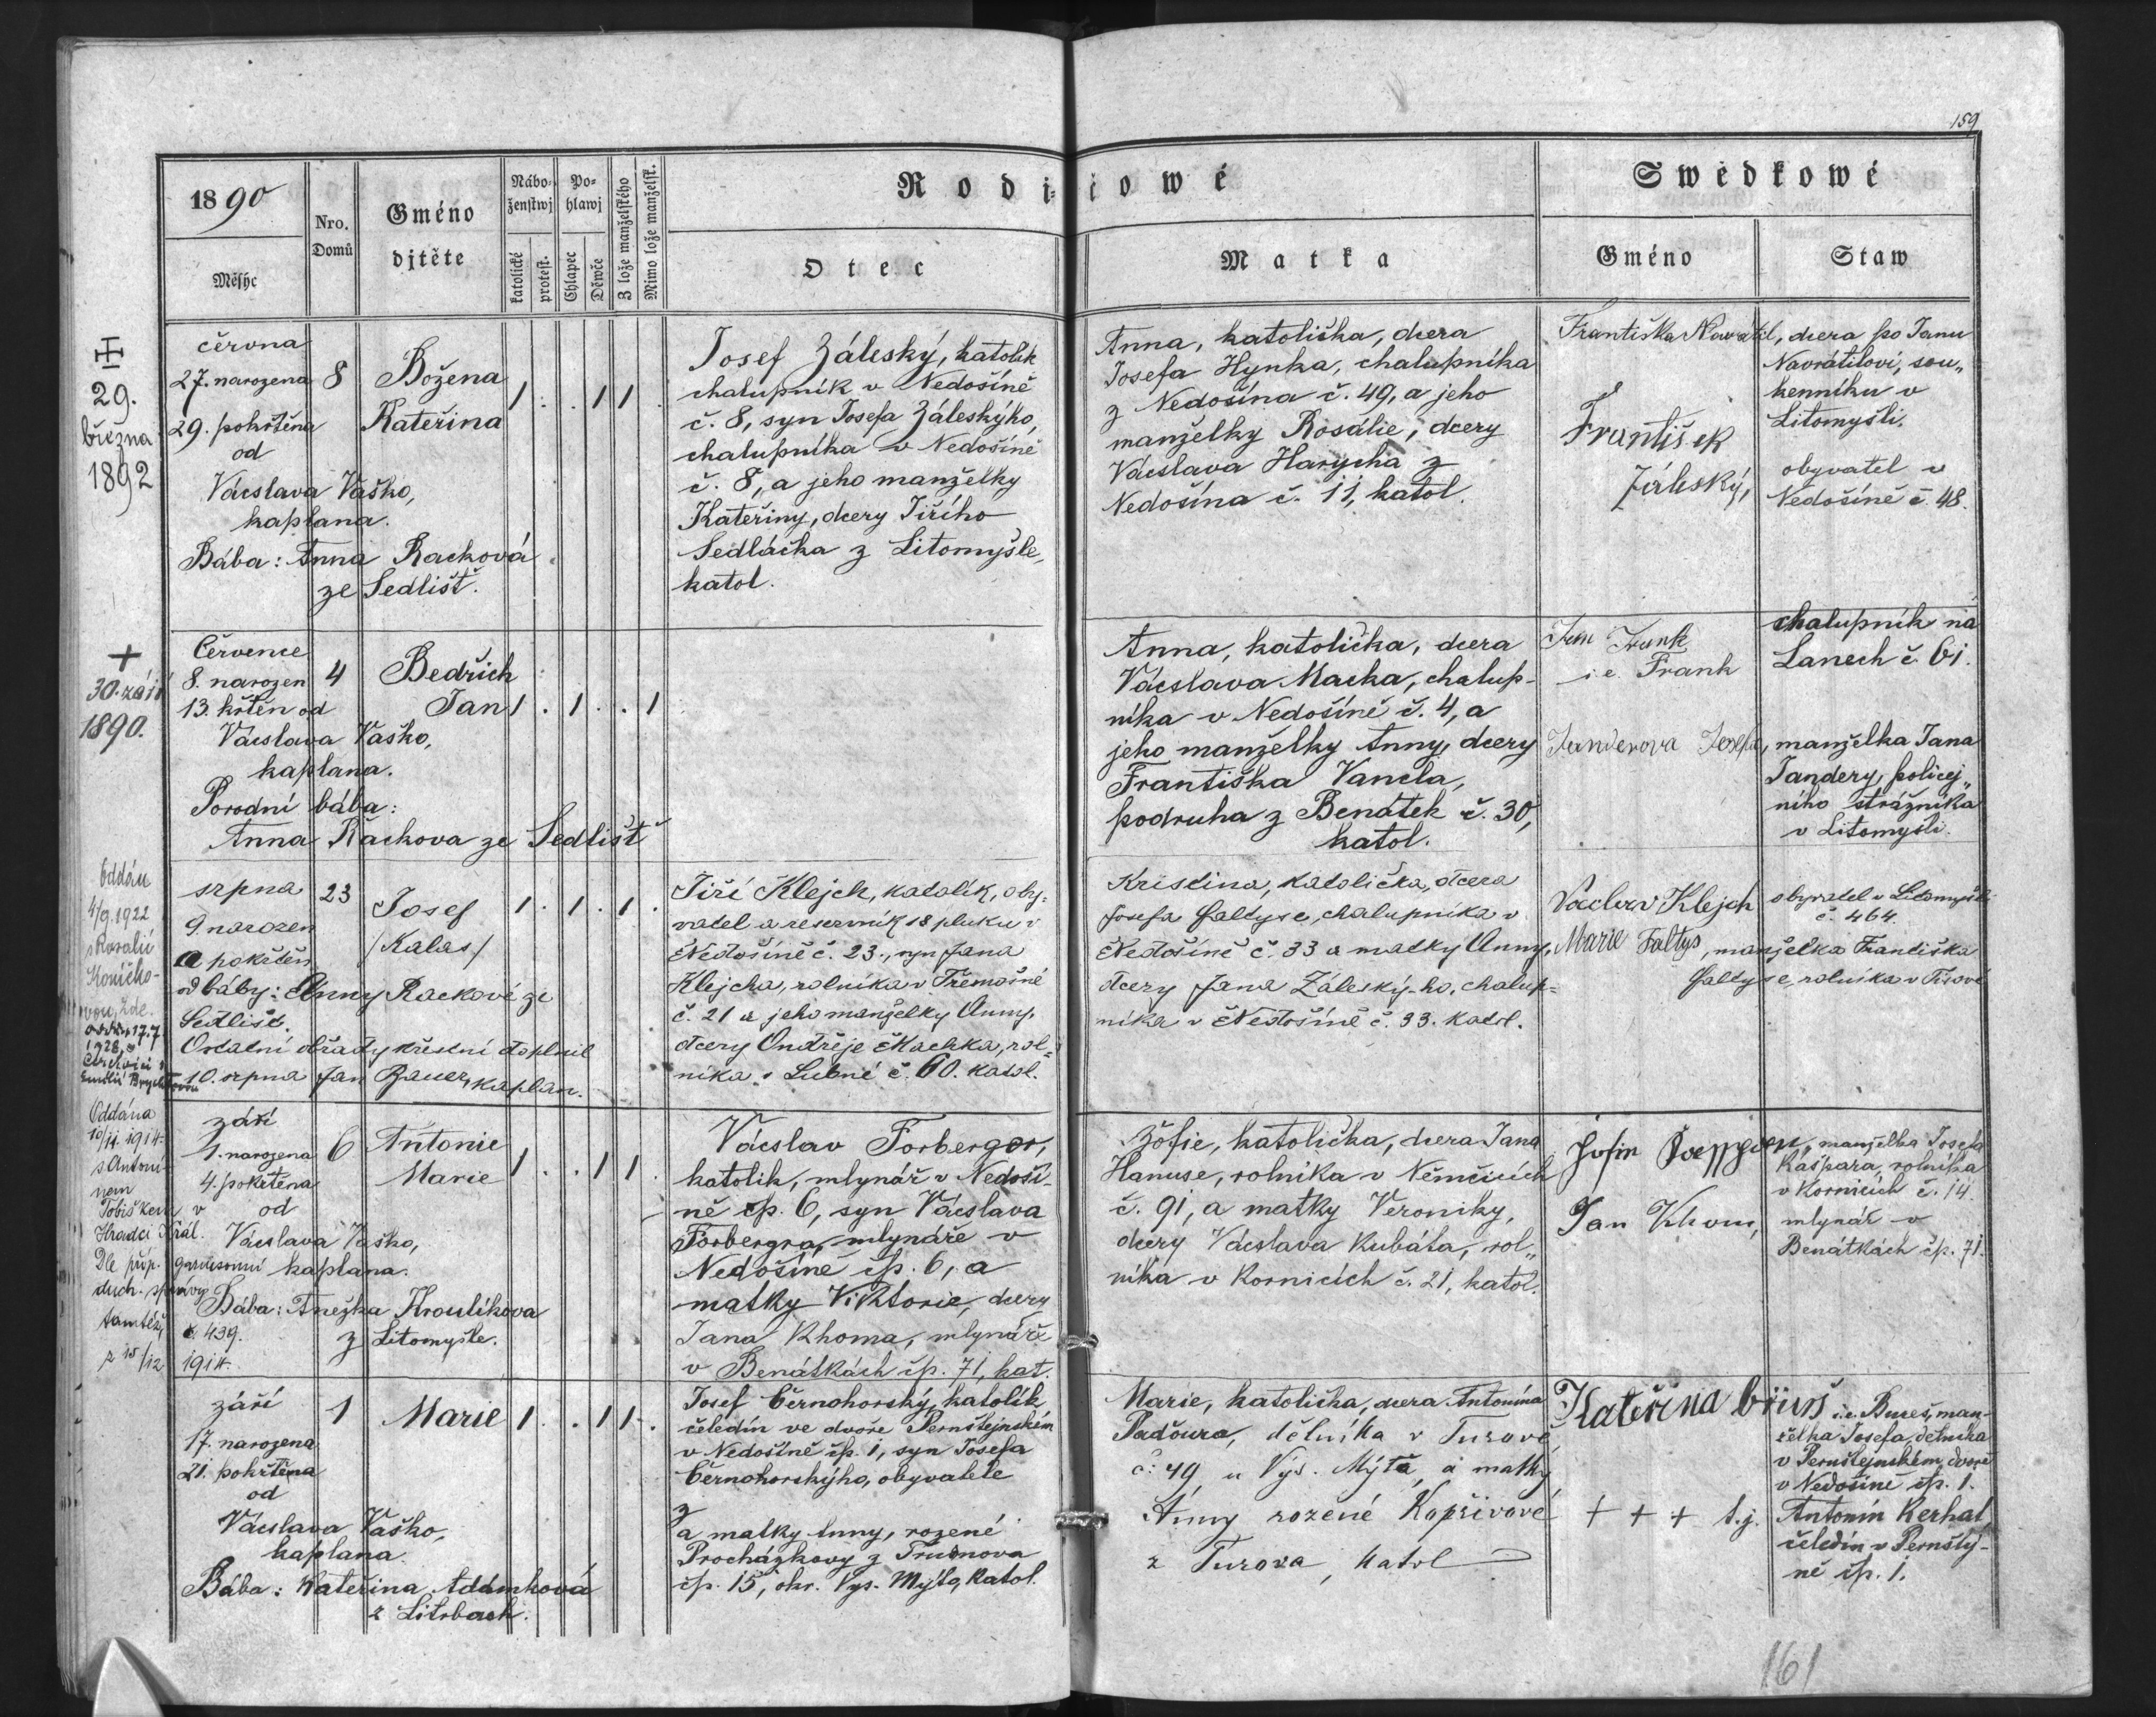 159
1890
Měsýc
Nro. Domů
Gméno djtěte
Nábo-ženstwj
katolické
protest.
Po-hlawj
Chlapec
Děwče
Z lože manželského
Mimo lože manželsk.
Rodi-čowé
Otec
Matka
Swědkowé
Gméno
Staw
29.
března
1892
června
27. narozena
29. pokřtěna
od
Václava Vaško,
kaplana.
Bába: Anna Racková
ze Sedlišť.
8
Božena
Kateřina
1 . . 1 1 .
Josef Záleský, katolík
chalupník v Nedošíně
č. 8, syn Josefa Záleskýho,
chalupníka v Nedošíně
č. 8, a jeho manželky
Kateřiny, dcery Jiřího
Sedláčka z Litomyšle,
katol.
Anna, katolička, dcera
Josefa Hynka, chalupníka
z Nedošína č. 49, a jeho
manželky Rosálie, dcery
Václava Harycha z
Nedošína č. 11, katol.
Františka Navratil,
František
Záleský,
dcera po Janu
Navrátilovi, sou„
kenníku v
Litomyšli.
obyvatel v
Nedošíně č. 48.
+
30. září
1890.
Července
8. narozen
13. křtěn od
Václava Vaško,
kaplana.
Porodní bába:
Anna Račkova ze Sedlišť
4
Bedřich
Jan
1 . 1 . . 1
Anna, katolička, dcera
Václava Macka, chalup-
níka v Nedošíně č. 4, a
jeho manželky Anny, dcery
Františka Vancla,
podruha z Benátek č. 30,
katol.
i.e. Frank
Janderova Josefa,
chalupník na
Lanech č. 61.
manželka Jana
Jandery, policej„
ního strážníka
v Litomyšli.
Oddán
4/9. 1922
s Rosalií
Koníčko-
vou, zde.
srpna
9 narozen
a pokřtěn
od báby: Anny Rackové ze
Sedlišť.
Ostatní obřady křestní doplnil
10. srpna Jan Bauer, kaplan.
23
Josef
/Kalas/
1 . 1 . 1 .
Jiří Klejch, katolík, oby-
vatel a reservník 18 pluku v
Nedošíně č. 23., syn Jana
Klejcha, rolníka v Třemošné
č. 21 a jeho manželky Anny,
dcery Ondřeje Machka, rol-
níka v Lubné č. 60. katol.
Kristina, katolička, dcera
Josefa Faltyse, chalupníka v
Nedošíně č. 33 a matky Anny,
dcery Jana Záleský-ho, chalup-
níka v Nedošíně č. 33. katol.
Václav Klejch
Marie Faltys,
obyvatel v Litomyšli
č. 464.
manželka Františka
Faltyse, rolníka v
Oddána
10/11. 1914
s Antoní-
nem
Tobiškem v
Hradci Král.
Dle příp.
duch. správy
tamtéž,
č. 439.
z 15/12 1914.
září
1. narozena
4. pokřtěna
od
Václava Vaško,
kaplana.
Bába: Anežka Kroulíkova
z Litomyšle.
6
Antonie
Marie
1 . . 1 1 .
Václav Forberger,
katolík, mlynář v Nedoší-
ně čp. 6, syn Václava
Forbergra, mlynáře v
Nedošíně čp. 6, a
matky Viktorie, dcery
Jana Khoma, mlynáře
v Benátkách čp. 71, kat.
Žofie, katolička, dcera Jana
Hanuse, rolníka v Němčicích
č. 91, a matky Veroniky,
dcery Václava Kubáta, rol„
níka v Kornicích č. 21, katol.
Jan Khom,
manželka Josefa
Kašpara, rolníka
v Kornicích č. 14.
mlynář v
Benátkách čp. 71.
září
17. narozena
21. pokřtěna
od
Václava Vaško,
kaplana.
Bába: Kateřina Adámková
z Litrbach.
1
Marie
1 . . 1 1 .
Josef Černohorský, katolík
čeledín ve dvoře Pernštejnském
v Nedošíně čp. 1, syn Josefa
Černohorskýho, obyvatele
z
a matky Anny, rozené
Procházkovy z Trusnova
čp. 15, okr. Vys. Mýto, katol.
Marie, katolička, dcera Antonína
Padoura, dělníka v Turově
č. 49 u Vys. Mýta, a matky
Anny rozené Kopřivové
z Turova, katol
Kateřina
i.e. Bureš, man-
želka Josefa, dělníka
v Pernštejnském dvoře
v Nedošíně čp. 1.
+ + + t.j.
Antonín Kerhat
čeledín v Pernštý-
ně čp. 1.
161